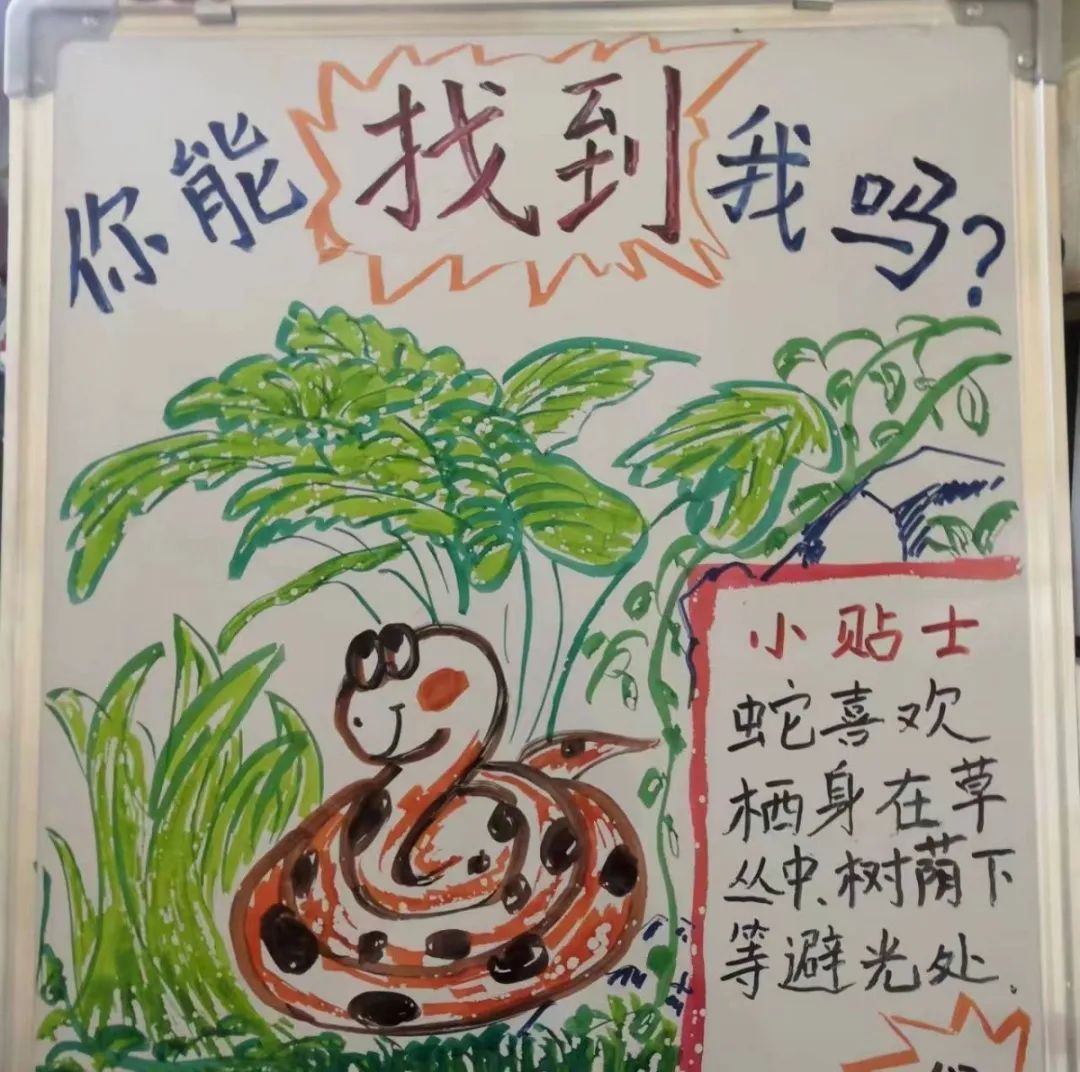 你能找到我吗?
小贴士
蛇喜欢
栖身在草
丛中、树荫下
等避光处.